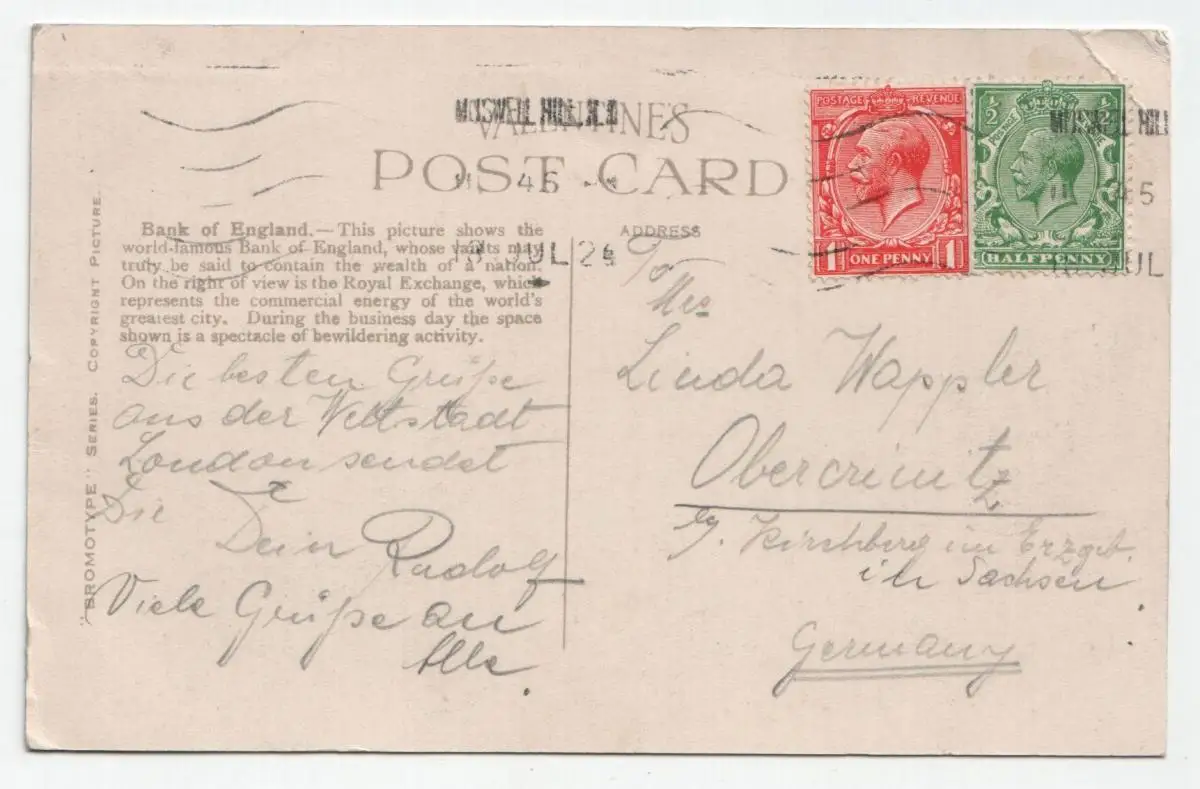 VALENTINE'S
POST CARD
MUSWELL HILL N.10
11 45
18 JUL 24
POSTAGE REVENUE
1 ONE PENNY 1
½ ½
POSTAGE
HALFPENNY
MUSWELL HILL
11 45
18 JUL
"BROMOTYPE" SERIES. COPYRIGHT PICTURE.
Bank of England.—This picture shows the
world-famous Bank of England, whose vaults may
truly be said to contain the wealth of a nation.
On the right of view is the Royal Exchange, which
represents the commercial energy of the world's
greatest city. During the business day the space
shown is a spectacle of bewildering activity.
Die besten Grüße
aus der Weltstadt
London sendet
Die
Dein Rudolf
Viele Grüße an
Alle.
ADDRESS
Mrs
Linda Wappler
Obercrinitz
b/. Kirchberg im Erzgeb.
in Sachsen.
Germany